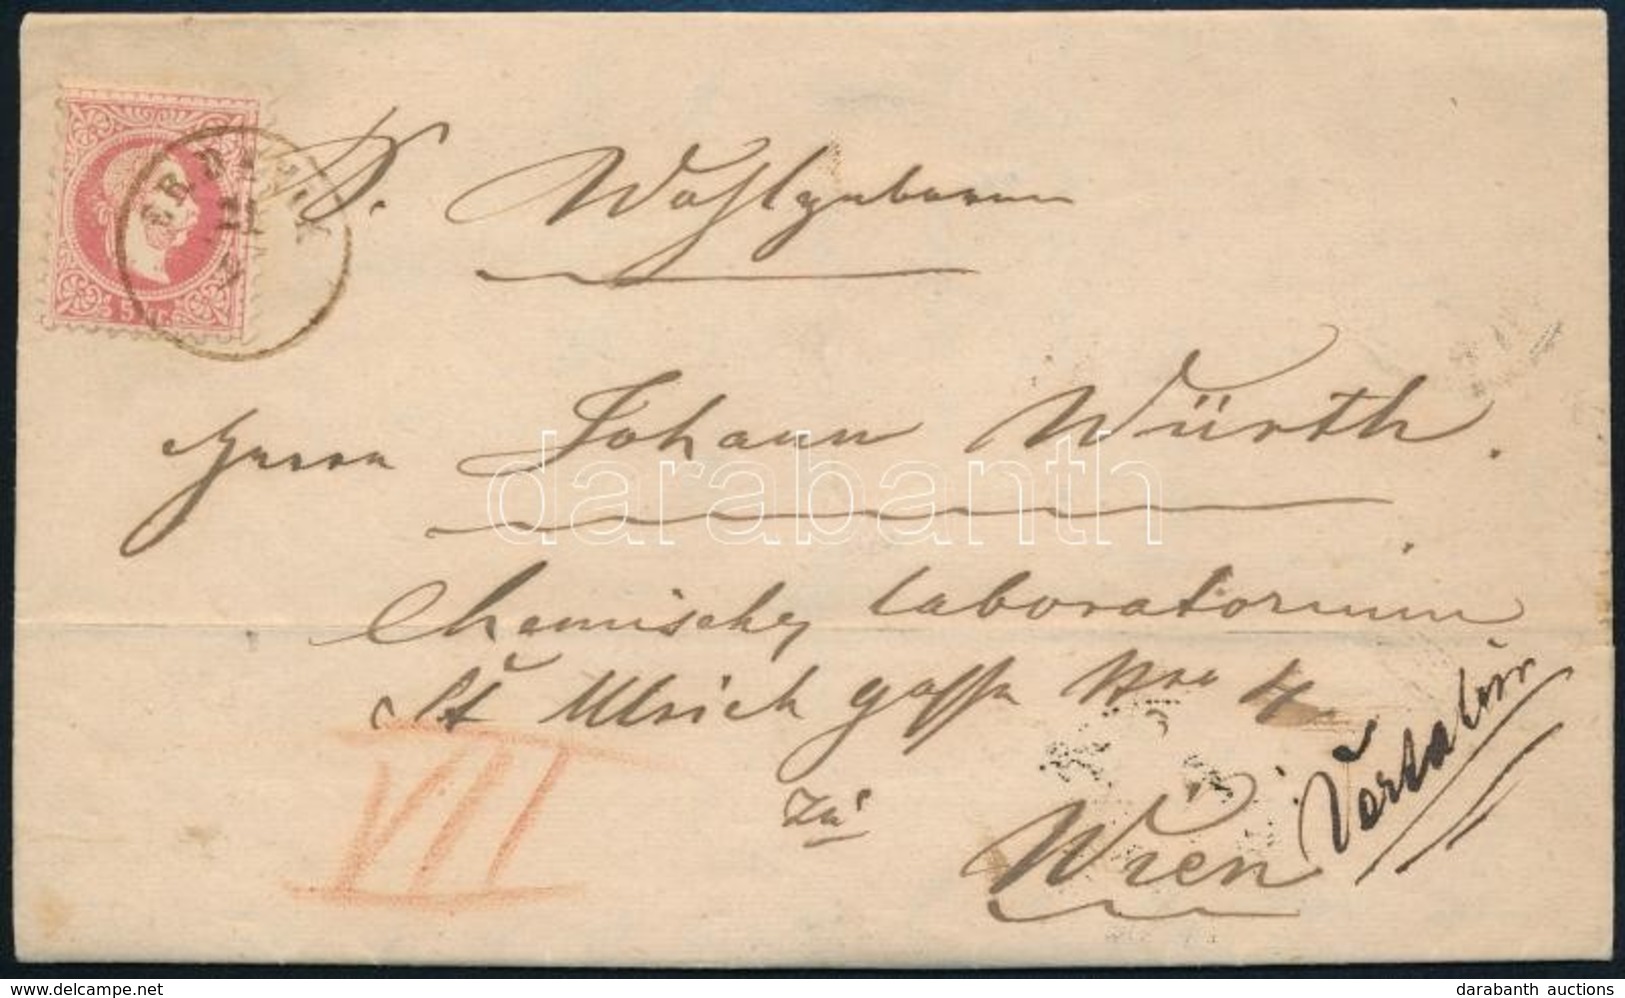 Sr. Wohlgeboren
Herrn Johann Würth.
Chemisches Laboratorium
St Ulrich gasse Nro 4
zu
Wien
VII
5 kr.
darabanth
delcampe.net
darabanth auctions